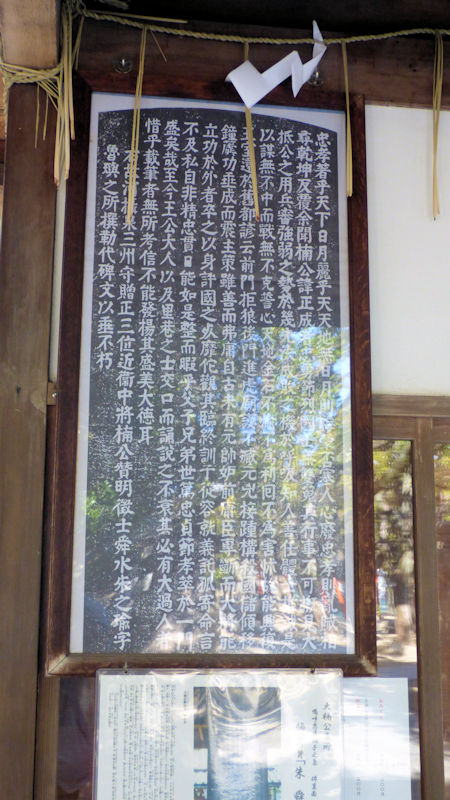 忠孝著乎天下日月麗乎天天地無日月則晦蒙否塞人心廢忠孝則亂賊相
尋乾坤反覆余聞楠公諱正成者忠勇節烈國士無雙蒐其行事不可概見大
抵公之用兵審強弱之勢於幾先決成敗之機於呼吸知人善任體士推誠是
以謀無不中而戰無不克誓心天地金石不渝不為利回不為害怵故能興復
王室還於舊都諺云前門拒狼後門進虎廟謨不臧元兇接踵構殺國儲傾移
鐘簴功垂成而震主策雖善而弗庸自古未有元帥妒前庸臣專斷而大將能
立功於外者卒之以身許國之死靡佗觀其臨終訓子從容就義託孤寄命言
不及私自非精忠貫日能如是整而暇乎父子兄弟世篤忠貞節孝萃於一門
盛矣哉至今王公大人以及里巷之士交口而誦說之不衰其必有大過人者
惜乎載筆者無所考信不能發揚其盛美大徳耳
右故河攝泉三州守贈正三位近衛中將楠公贊明徵士舜水朱之瑜字
魯璵之所撰勒代碑文以垂不朽